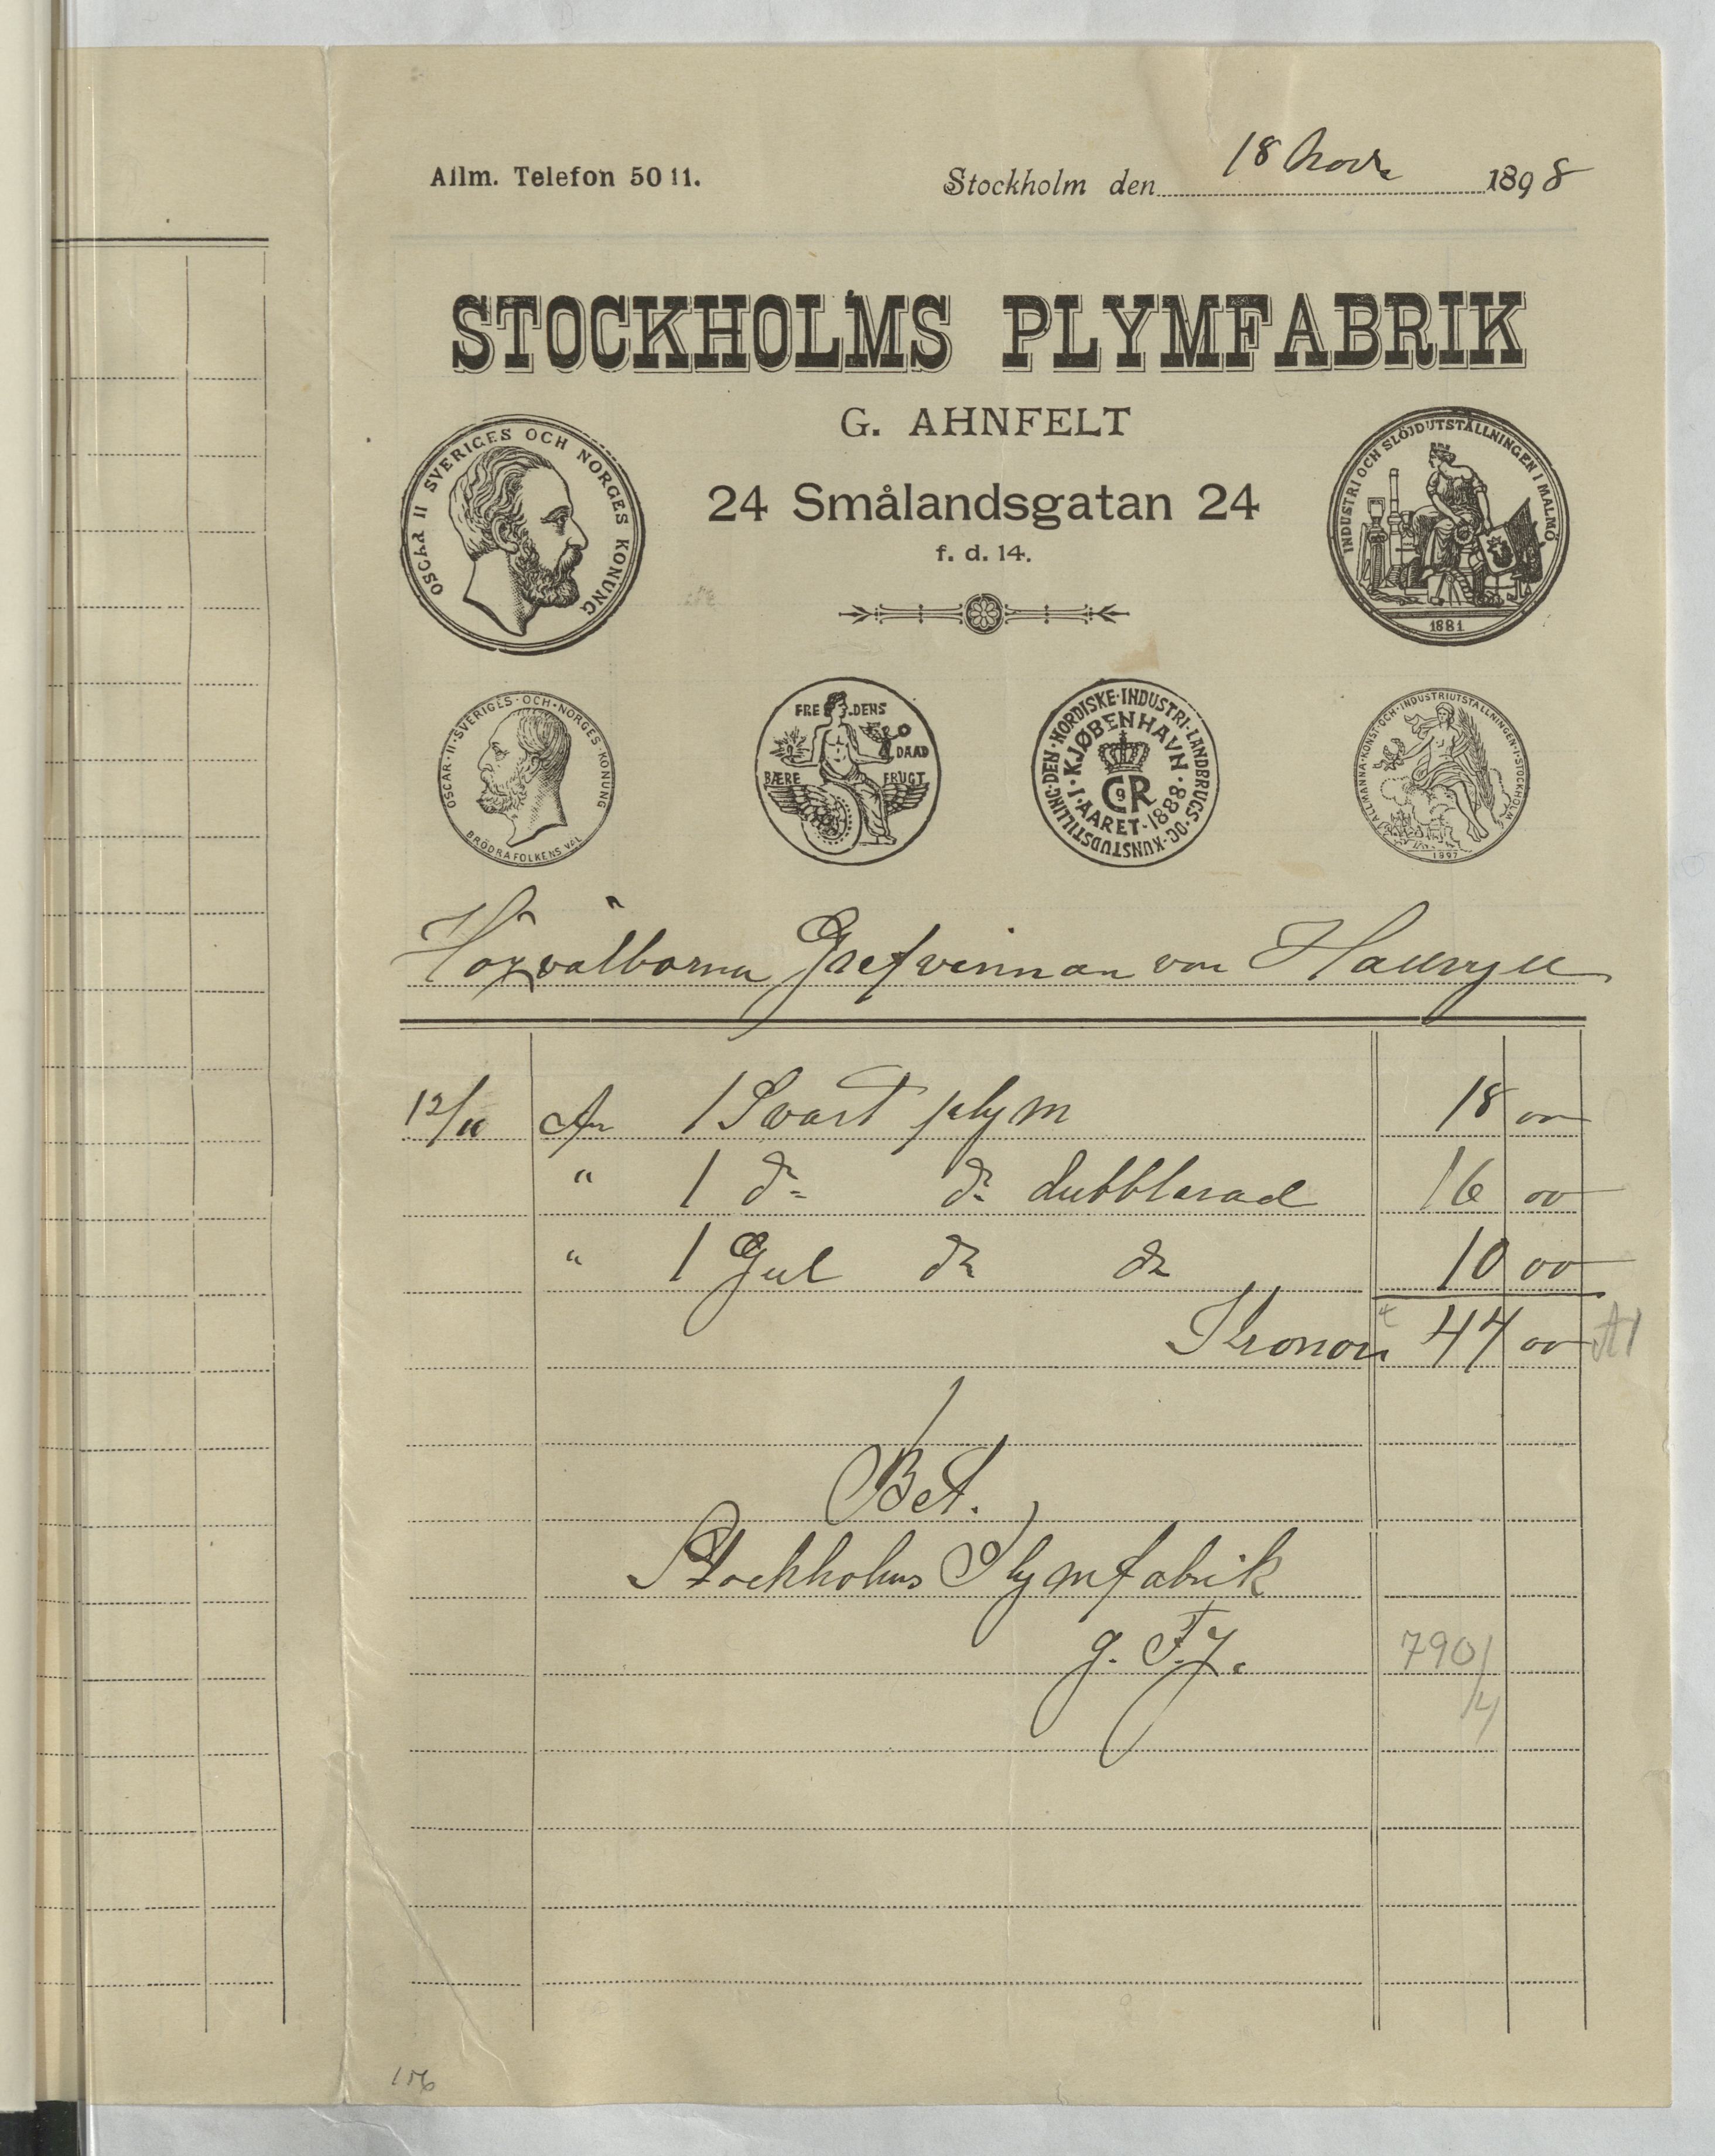 Allm. Telefon 50 11.
Stockholm den 18 Novr 1898
STOCKHOLMS PLYMFABRIK
G. AHNFELT
24 Smålandsgatan 24
f. d. 14.
OSCAR II SVERIGES OCH NORGES KONUNG
INDUSTRI OCH SLÖJDUTSTÄLLNINGEN I MALMÖ
1881
OSCAR·II·SVERIGES·OCH·NORGES·KONUNG
BRÖDRAFOLKENS VÄL
FREDENS DAAD
BÆRE FRUGT
DEN·NORDISKE·INDUSTRI·LANDBRUGS·OG·KUNSTUDSTILLING
·I·KJØBENHAVN·
I·AARET·1888·
C9R
ALLMÄNNA·KONST·OCH·INDUSTRIUTSTÄLLNINGEN·I·STOCKHOLM
1897
Högvälborna Grefvinnan von Hallwyll
12/11 An 1 Svart plym 18 00
" 1 do do dubblerad 16 00
" 1 Gul do do 10 00
Kronor 44 00
Bet.
Stockholms Plymfabrik
g. F.J.
790/4